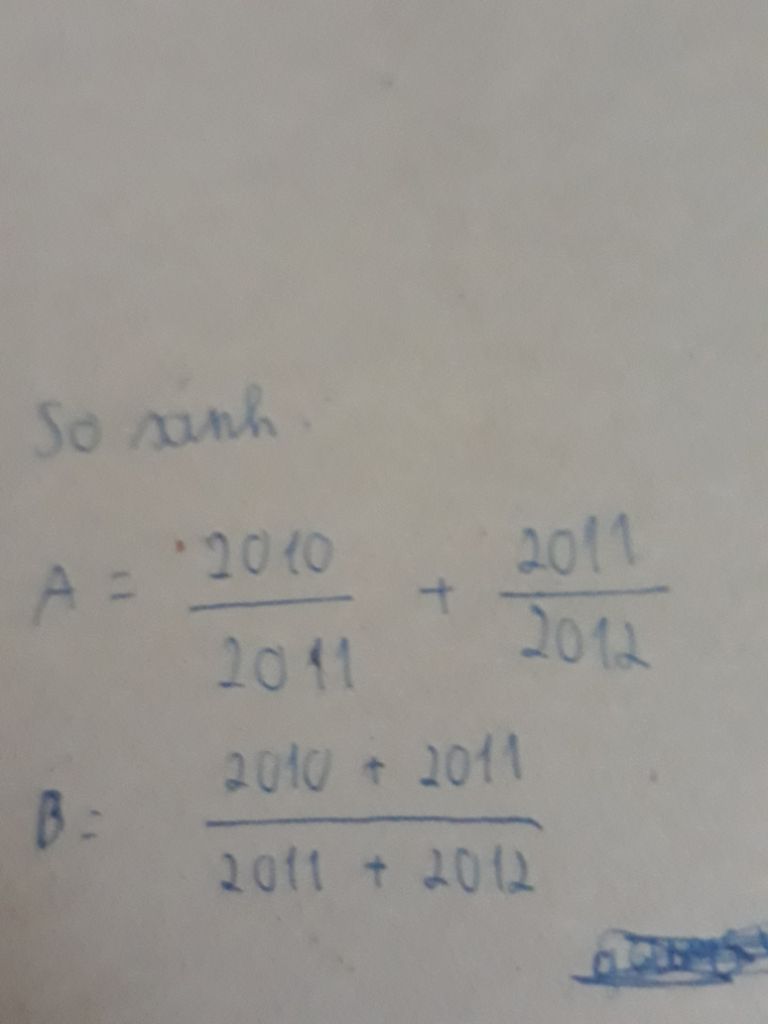 So sánh.
A = 2010/2011 + 2011/2012
B = 2010 + 2011 / 2011 + 2012